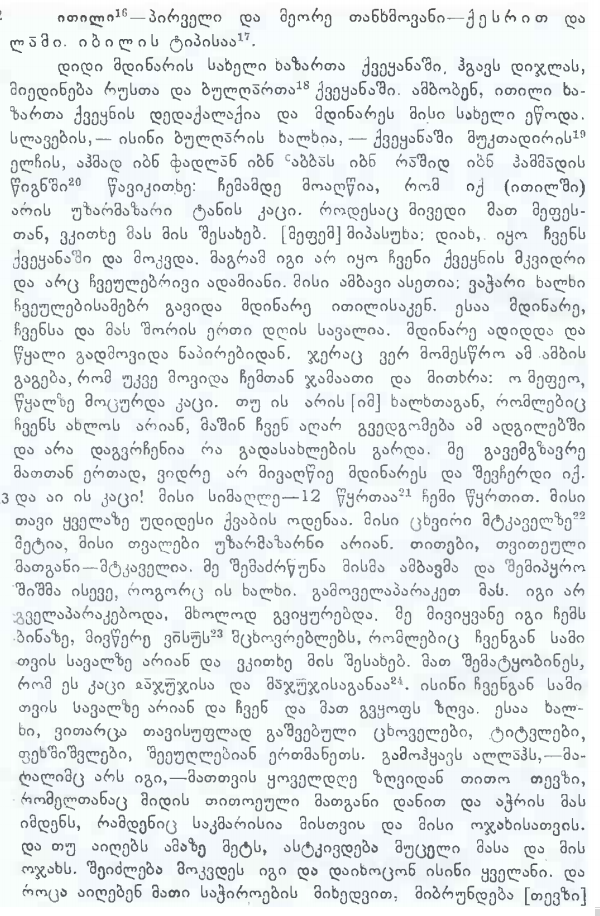 2 ითილი¹⁶—პირველი და მეორე თანხმოვანი—ქესრით და
ლა̄მი. იბილის ტიპისაა¹⁷.
დიდი მდინარის სახელი ხაზართა ქვეყანაში, ჰგავს დიჯლას,
მიედინება რუსთა და ბულღა̄რთა¹⁸ ქვეყანაში. ამბობენ, ითილი ხა-
ზართა ქვეყნის დედაქალაქია და მდინარეს მისი სახელი ეწოდა.
სლავების,— ისინი ბულღა̄რის ხალხია, — ქვეყანაში მუკთადირის¹⁹
ელჩის, აჰმად იბნ ფადლა̄ნ იბნ ʿაბბა̄ს იბნ რა̄შიდ იბნ ჰამმა̄დის
წიგნში²⁰ წავიკითხე: ჩემამდე მოაღწია, რომ იქ (ითილში)
არის უზარმაზარი ტანის კაცი. როდესაც მივედი მათ მეფეს-
თან, ვკითხე მას მის შესახებ. [მეფემ] მიპასუხა: დიახ, იყო ჩვენს
ქვეყანაში და მოკვდა. მაგრამ იგი არ იყო ჩვენი ქვეყნის მკვიდრი
და არც ჩვეულებრივი ადამიანი. მისი ამბავი ასეთია; ვაჭარი ხალხი
ჩვეულებისამებრ გავიდა მდინარე ითილისაკენ. ესაა მდინარე,
ჩვენსა და მას შორის ერთი დღის სავალია. მდინარე ადიდდა და
წყალი გადმოვიდა ნაპირებიდან. ჯერაც ვერ მომესწრო ამ ამბის
გაგება, რომ უკვე მოვიდა ჩემთან ჯამაათი და მითხრა: ო მეფეო,
წყალზე მოცურდა კაცი. თუ ის არის [იმ] ხალხთაგან, რომლებიც
ჩვენს ახლოს არიან, მაშინ ჩვენ აღარ გვედგომება ამ ადგილებში
და არა დაგვრჩენია რა გადასახლების გარდა. მე გავემგზავრე
მათთან ერთად, ვიდრე არ მივაღწიე მდინარეს და შევჩერდი იქ.
3 და აი ის კაცი! მისი სიმაღლე—12 წყრთაა²¹ ჩემი წყრთით. მისი
თავი ყველაზე უდიდესი ქვაბის ოდენაა. მისი ცხვირი მტკაველზე²²
მეტია, მისი თვალები უზარმაზარნი არიან. თითები, თვითეული
მათგანი—მტკაველია. მე შემაძრწუნა მისმა ამბავმა და შემიპყრო
შიშმა ისევე, როგორც ის ხალხი. გამოველაპარაკეთ მას. იგი არ
გველაპარაკებოდა, მხოლოდ გვიყურებდა. მე მივიყვანე იგი ჩემს
ბინაზე, მივწერე ვი̄სუ̄ს²³ მცხოვრებლებს, რომლებიც ჩვენგან სამი
თვის სავალზე არიან და ვკითხე მის შესახებ. მათ შემატყობინეს,
რომ ეს კაცი ჲა̄ჯუ̄ჯისა და მა̄ჯუ̄ჯისაგანაა²⁴. ისინი ჩვენგან სამი
თვის სავალზე არიან და ჩვენ და მათ გვყოფს ზღვა. ესაა ხალ-
ხი, ვითარცა თავისუფლად გაშვებული ცხოველები, ტიტვლები,
ფეხშიშვლები, შეეუღლებიან ერთმანეთს. გამოჰყავს ალლა̄ჰს,—მა-
ღალიმც არს იგი,—მათთვის ყოველდღე ზღვიდან თითო თევზი,
რომელთანაც მიდის თითოეული მათგანი დანით და აჭრის მას
იმდენს, რამდენიც საკმარისია მისთვის და მისი ოჯახისათვის.
და თუ აიღებს ამაზე მეტს, ასტკივდება მუცელი მასა და მის
ოჯახს. შეიძლება მოკვდეს იგი და დაიხოცონ ისინი ყველანი. და
როცა აიღებენ მათი საჭიროების მიხედვით, მიბრუნდება [თევზი]